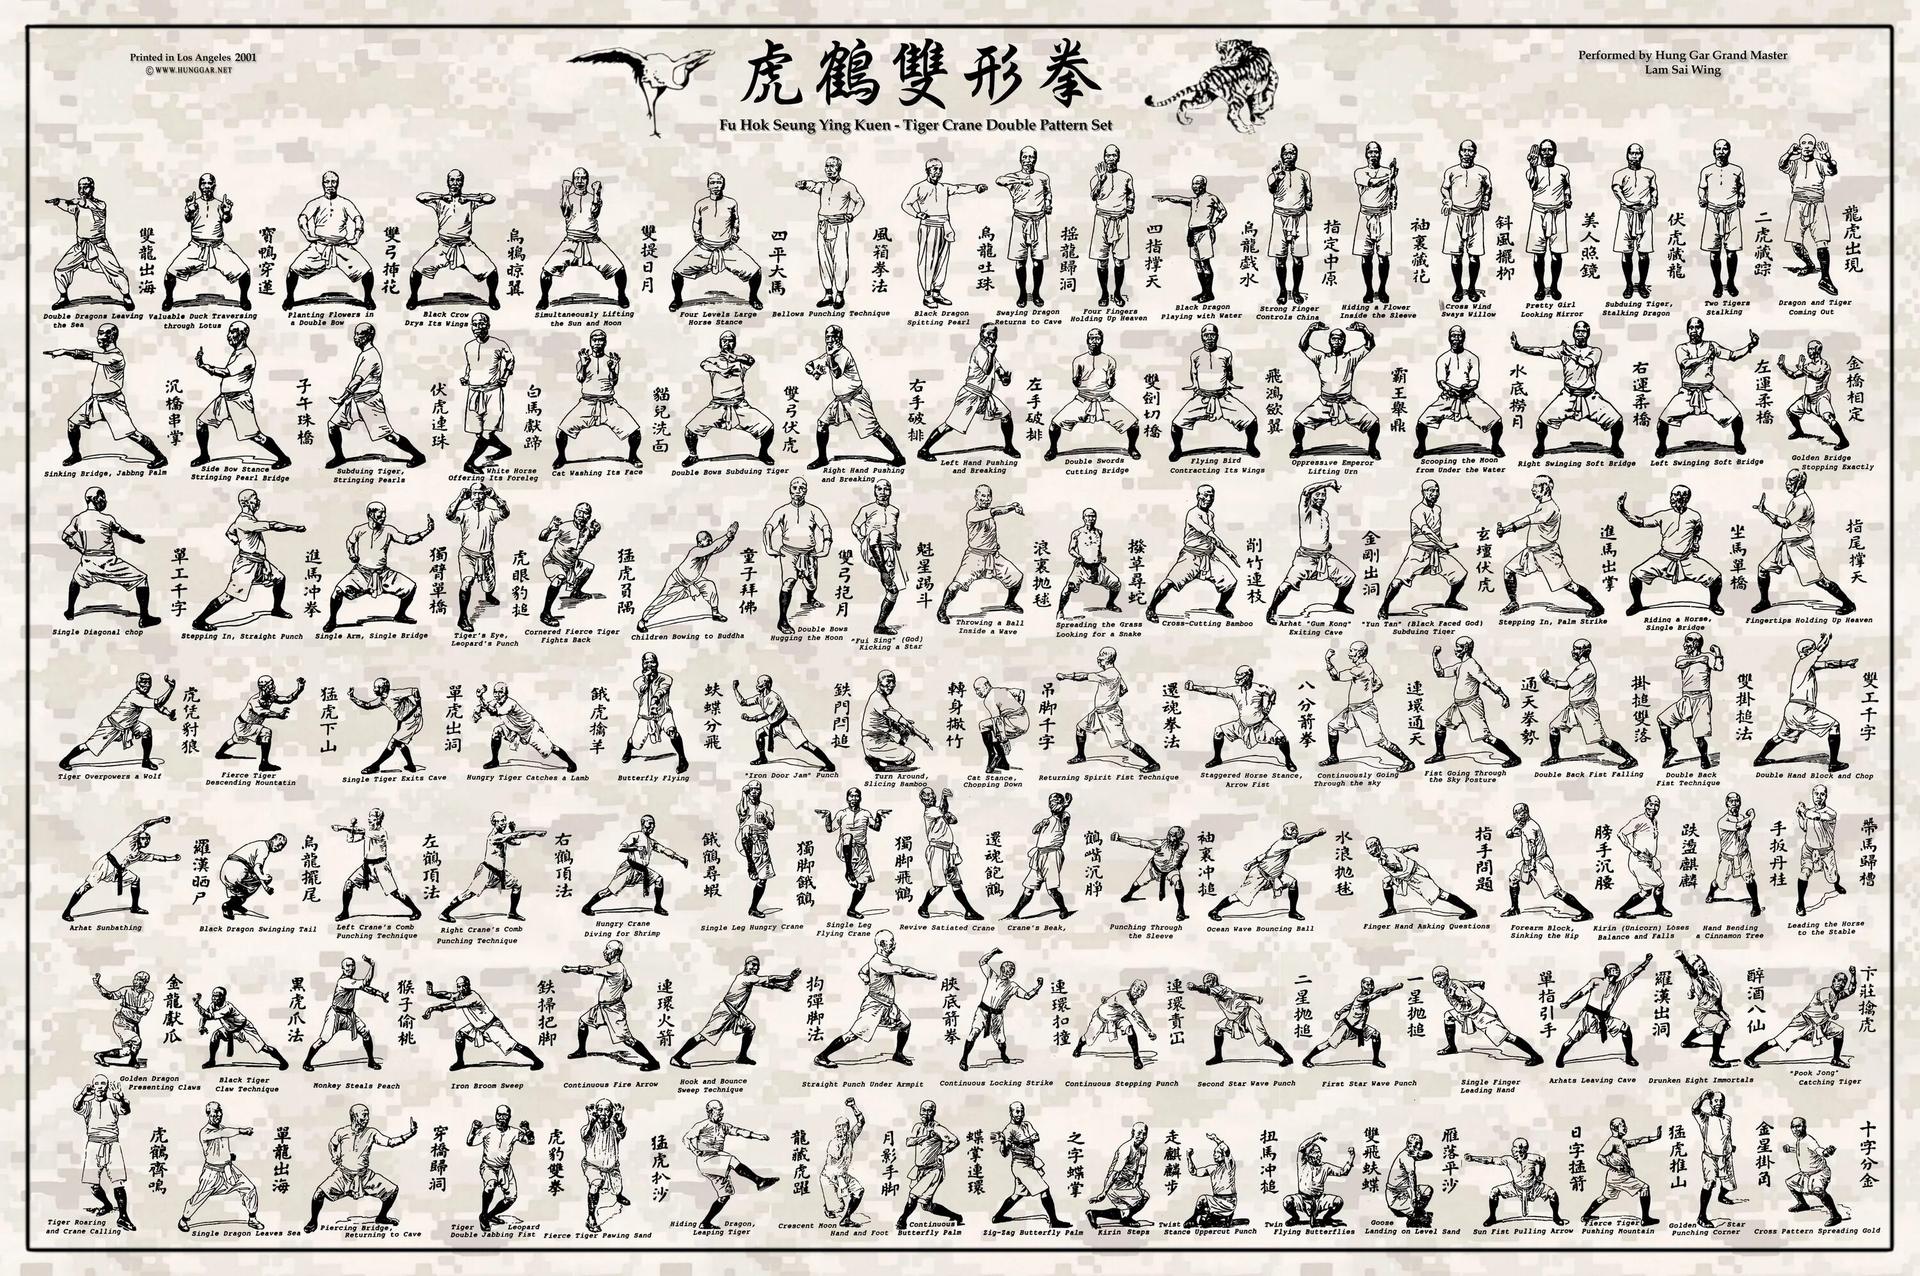 Printed in Los Angeles 2001
© WWW.HUNGGAR.NET
虎鶴雙形拳
Fu Hok Seung Ying Kuen - Tiger Crane Double Pattern Set
Performed by Hung Gar Grand Master
Lam Sai Wing
雙龍出海
寶鴨穿蓮
雙弓揷花
烏鴉晾翼
雙提日月
四平大馬
風箱拳法
烏龍吐珠
搖龍歸洞
四指撑天
烏龍戲水
指定中原
袖裏藏花
斜風擺柳
美人照鏡
伏虎藏龍
二虎藏踪
龍虎出現
Double Dragons Leaving the Sea
Valuable Duck Traversing through Lotus
Planting Flowers in a Double Bow
Black Crow Drys Its Wings
Simultaneously Lifting the Sun and Moon
Four Levels Large Horse Stance
Bellows Punching Technique
Black Dragon Spitting Pearl
Swaying Dragon Returns to Cave
Four Fingers Holding Up Heaven
Black Dragon Playing with Water
Strong Finger Controls China
Hiding a Flower Inside the Sleeve
Cross Wind Sways Willow
Pretty Girl Looking Mirror
Subduing Tiger, Stalking Dragon
Two Tigers Stalking
Dragon and Tiger Coming Out
沉橋串掌
子午珠橋
伏虎連珠
白馬獻蹄
貓兒洗面
雙弓伏虎
右手破排
左手破排
雙劍切橋
飛鴻歛翼
霸王舉鼎
水底撈月
右運柔橋
左運柔橋
金橋相定
Sinking Bridge, Jabbng Palm
Side Bow Stance Stringing Pearl Bridge
Subduing Tiger, Stringing Pearls
White Horse Offering Its Foreleg
Cat Washing Its Face
Double Bows Subduing Tiger
Right Hand Pushing and Breaking
Left Hand Pushing and Breaking
Double Swords Cutting Bridge
Flying Bird Contracting Its Wings
Oppressive Emperor Lifting Urn
Scooping the Moon from Under the Water
Right Swinging Soft Bridge
Left Swinging Soft Bridge
Golden Bridge Stopping Exactly
單工千字
進馬冲拳
獨臂單橋
虎眼豹搥
猛虎負隅
童子拜佛
雙弓抱月
魁星踢斗
浪裏抛毬
撥草尋蛇
削竹連枝
金剛出洞
玄壇伏虎
進馬出掌
坐馬單橋
指尾撑天
Single Diagonal chop
Stepping In, Straight Punch
Single Arm, Single Bridge
Tiger's Eye, Leopard's Punch
Cornered Fierce Tiger Fights Back
Children Bowing to Buddha
Double Bows Hugging the Moon
"Fui Sing" (God) Kicking a Star
Throwing a Ball Inside a Wave
Spreading the Grass Looking for a Snake
Cross-Cutting Bamboo
Arhat "Gum Kong" Exiting Cave
"Yun Tan" (Black Faced God) Subduing Tiger
Stepping In, Palm Strike
Riding a Horse, Single Bridge
Fingertips Holding Up Heaven
虎凭豺狼
猛虎下山
單虎出洞
餓虎擒羊
蚨蝶分飛
鉄門閂搥
轉身撇竹
吊脚千字
還魂拳法
八分箭拳
連環通天
通天拳勢
掛搥雙落
雙掛搥法
雙工千字
Tiger Overpowers a Wolf
Fierce Tiger Descending Mountatin
Single Tiger Exits Cave
Hungry Tiger Catches a Lamb
Butterfly Flying
"Iron Door Jam" Punch
Turn Around, Slicing Bamboo
Cat Stance, Chopping Down
Returning Spirit Fist Technique
Staggered Horse Stance, Arrow Fist
Continuously Going Through the sky
Fist Going Through the Sky Posture
Double Back Fist Falling
Double Back Fist Technique
Double Hand Block and Chop
羅漢晒尸
烏龍擺尾
左鶴頂法
右鶴頂法
餓鶴尋蝦
獨脚餓鶴
獨脚飛鶴
還魂飽鶴
鶴嘴沉睜
袖裏冲搥
水浪抛毬
指手問題
膀手沉腰
跌盪麒麟
手扳丹桂
帶馬歸槽
Arhat Sunbathing
Black Dragon Swinging Tail
Left Crane's Comb Punching Technique
Right Crane's Comb Punching Technique
Hungry Crane Diving for Shrimp
Single Leg Hungry Crane
Single Leg Flying Crane
Revive Satiated Crane
Crane's Beak,
Punching Through the Sleeve
Ocean Wave Bouncing Ball
Finger Hand Asking Questions
Forearm Block, Sinking the Hip
Kirin (Unicorn) Loses Balance and Falls
Hand Bending a Cinnamon Tree
Leading the Horse to the Stable
金龍獻爪
黑虎爪法
猴子偷桃
鉄掃把脚
連環火箭
拘彈脚法
脥底箭拳
連環扣撞
連環賁㓊
二星抛搥
一星抛搥
單指引手
羅漢出洞
醉酒八仙
卞莊擒虎
Golden Dragon Presenting Claws
Black Tiger Claw Technique
Monkey Steals Peach
Iron Broom Sweep
Continuous Fire Arrow
Hook and Bounce Sweep Technique
Straight Punch Under Armpit
Continuous Locking Strike
Continuous Stepping Punch
Second Star Wave Punch
First Star Wave Punch
Single Finger Leading Hand
Arhats Leaving Cave
Drunken Eight Immortals
"Pook Jong" Catching Tiger
虎鶴齊鳴
單龍出海
穿橋歸洞
虎豹雙拳
猛虎扒沙
龍藏虎躍
月影手脚
蝶掌連環
之字蝶掌
走麒麟步
扭馬冲搥
雙飛蚨蝶
雁落平沙
日字猛箭
猛虎推山
金星掛角
十字分金
Tiger Roaring and Crane Calling
Single Dragon Leaves Sea
Piercing Bridge, Returning to Cave
Tiger Leopard Double Jabbing Fist
Fierce Tiger Pawing Sand
Hiding Dragon, Leaping Tiger
Crescent Moon Hand and Foot
Continuous Butterfly Palm
Zig-Zag Butterfly Palm
Kirin Steps
Twist Stance Uppercut Punch
Twin Flying Butterflies
Goose Landing on Level Sand
Sun Fist Pulling Arrow
Fierce Tiger Pushing Mountain
Golden Star Punching Corner
Cross Pattern Spreading Gold